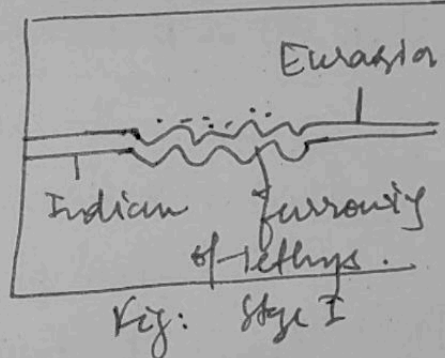 Eurasia
Indian furrowing
of tethys.
Fig: Stage I